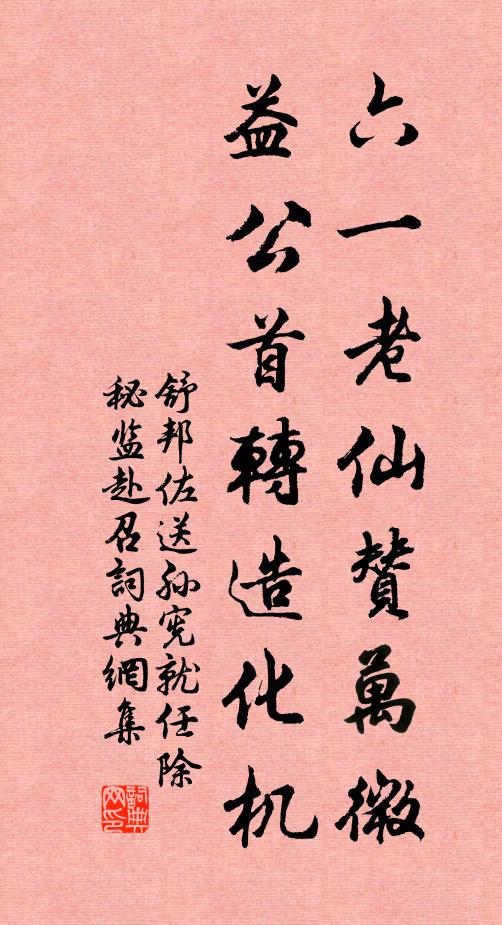 六一老仙贊萬微
益公首轉造化机
舒邦佐送孙宪就任除
秘监赴召詞典網集
詞典网印